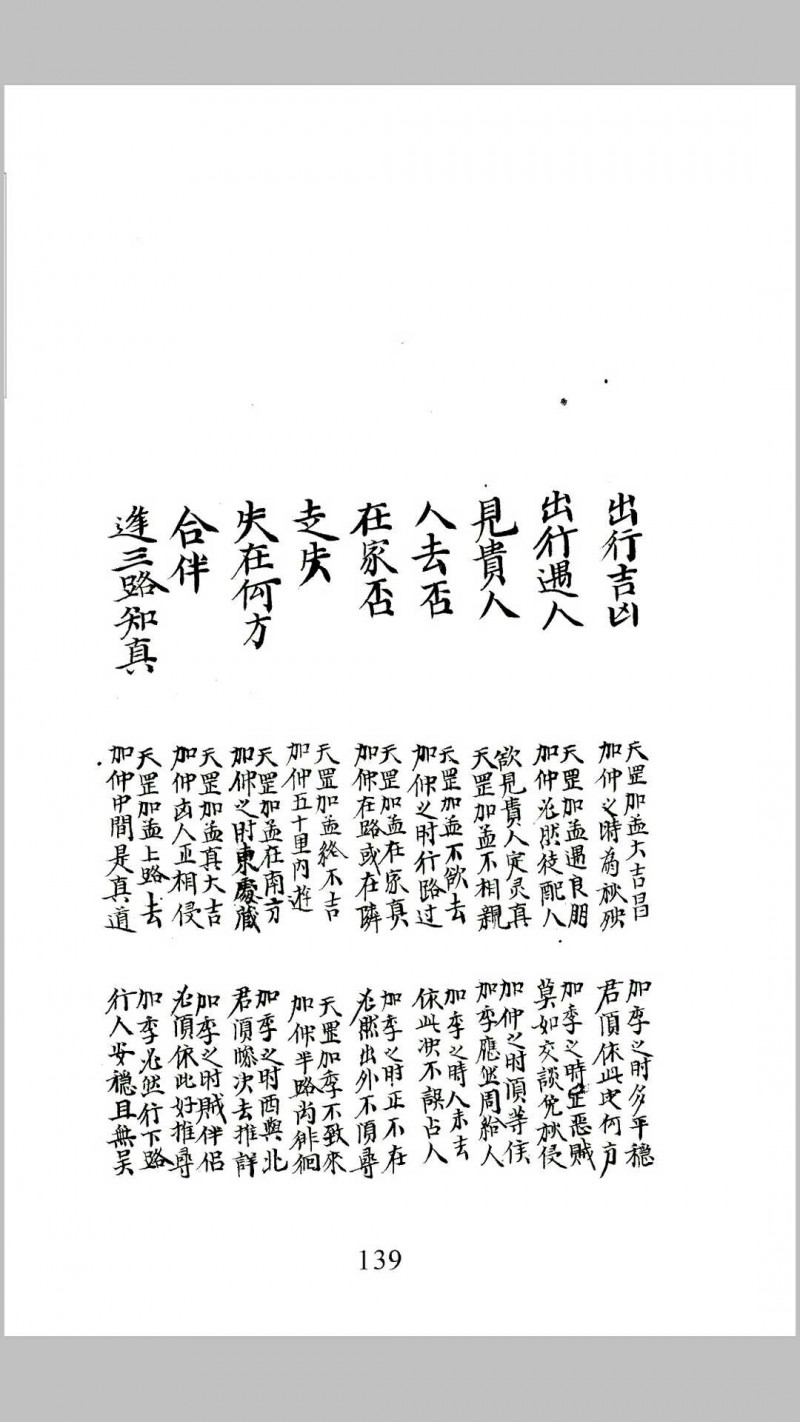 出行吉凶
天罡加孟大吉昌
加仲之時為秋殃
加季之时多平穩
君須依此定何方
出行遇人
天罡加孟遇良朋
加仲必然徒配人
加季之時是惡賊
莫如交談免秋侵
見貴人
欲見貴人定灵真
天罡加孟不相親
加仲之时須等候
加季應然周給人
人去否
天罡加孟不欲去
加仲之时行路过
加季之時人未去
依此决不誤占人
在家否
天罡加孟在家真
加仲在路或在隣
加季之时正不在
必然出外不須尋
走失
天罡加孟終不吉
加仲五十里內遊
天罡加季不致來
加仲半路尚徘徊
失在何方
天罡加孟在南方
加仲之时東處藏
加季之时西與北
君須次去推詳
合伴
天罡加孟真大吉
加仲凶人正相侵
加季之时賊伴侶
必須依此好推尋
逢三路知真
天罡加孟上路去
加仲中間是真道
加季必然行下路
行人安穩且無吴
139